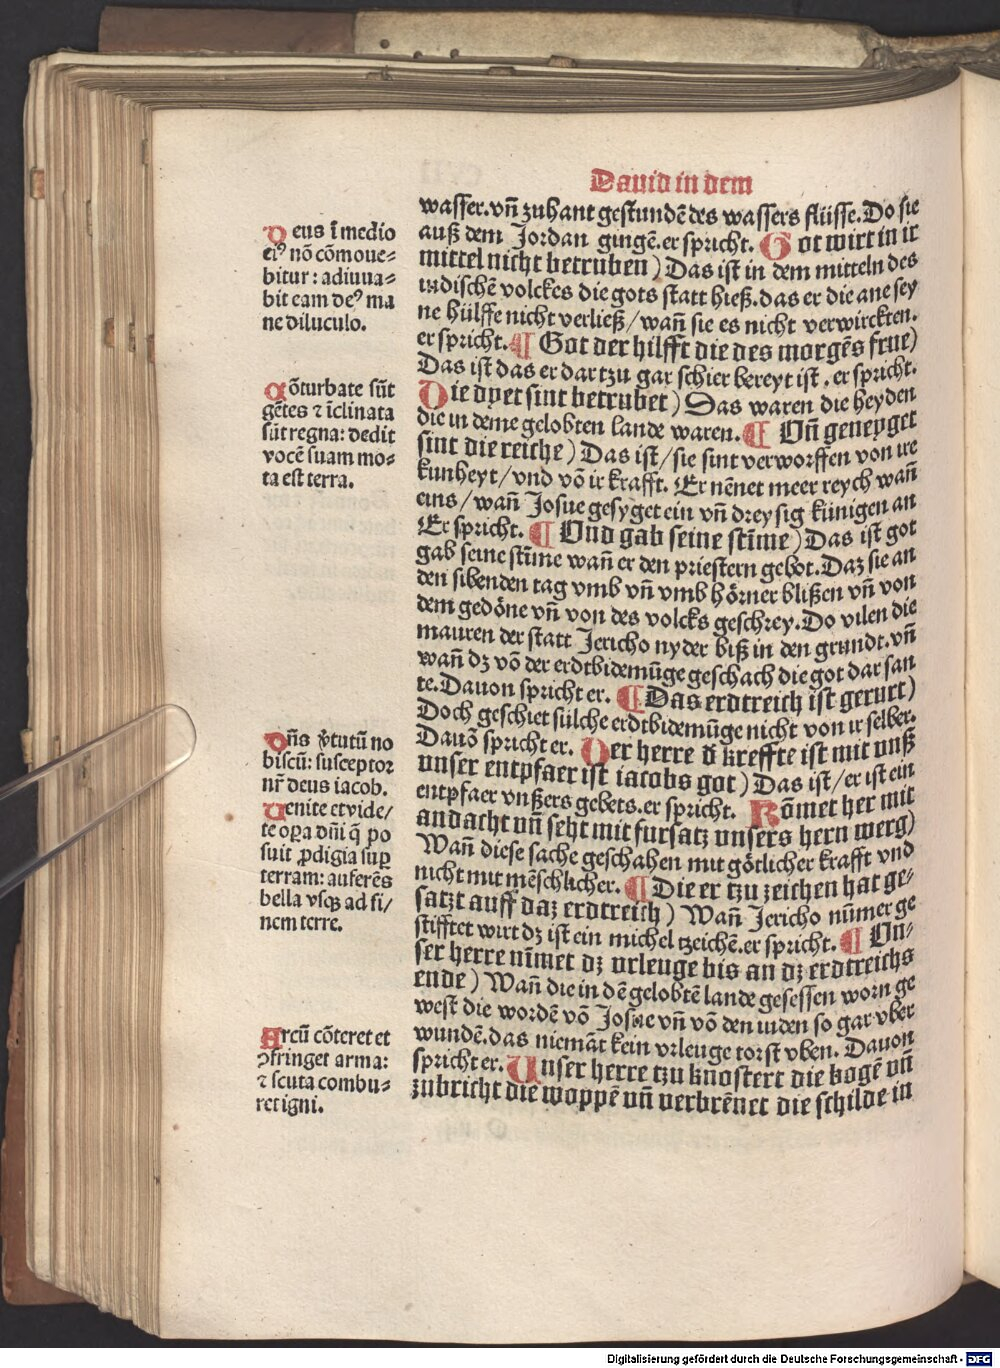 Dauid in dem
wasser.vñ zuhant gestundē des wassers flüsse.Do sie
auß dem Jordan gingē.er spricht. Got wirt in ir
mittel nicht betruben) Das ist in dem mitteln des
iudischē volckes die gots statt hieß.das er die ane sey
ne hülffe nicht verließ/wañ sie es nicht verwirckten.
er spricht.¶ Got der hilfft die des morgēs frue)
Das ist das er dar tzu gar schier bereyt ist.er spricht.
Die dyet sint betrubet) Das waren die heyden
die in deme gelobten lande waren.¶ Vñ geneyget
sint die reiche) Das ist/sie sint verworffen von ire
kunheyt/vnd vō ir krafft. Er nēnet meer reych wañ
eins/wañ Josue gesyget ein vñ dreysig künigen an
Er spricht. ¶ Vnd gab seine stīme) Das ist got
gab seine stīme wañ er den priestern gebot.Daz sie an
den sibenden tag vmb vñ vmb hörner blißen vñ von
dem gedöne vñ von des volcks geschrey.Do vilen die
mauren der statt Jericho nyder biß in den grundt.vñ
wañ dz vō der erdtbidemūge geschach die got dar san
te.Dauon spricht er. ¶ Das erdtreich ist gerurt)
Doch geschiet sülche erdtbidemūge nicht von ir selber.
Dauō spricht er. Der herre d̄ kreffte ist mit vnß
vnser entpfaer ist iacobs got) Das ist/er ist ein
entpfaer vnßers gebets.er spricht. Kōmet her mit
andacht vñ seht mit fursatz vnsers hern werg)
Wañ diese sache geschahen mit götlicher krafft vnd
nicht mit mēschlicher.¶ Die er tzu zeichen hat ge⸗
satzt auff daz erdtreich) Wañ Jericho nūmer ge
stifftet wirt dz ist ein michel tzeichē.er spricht.¶ Vn⸗
ser herre nīmet dz vrleuge bis an dz erdtreichs
ende) Wañ die in dē gelobtē lande gesessen worn ge
west die wordē vō Josue vñ vō den iuden so gar vber
wundē.das niemāt kein vrleuge torst vben. Dauon
spricht er. Vnser herre tzu knostert die bogē vñ
zubricht die woppē vñ verbrēnet die schilde in
Deus ī medio
eiꝰ nō cōmoue⸗
bitur : adiuua⸗
bit eam deꝰ ma
ne diluculo.
Cōturbate sūt
gētes ⁊ īclinata
sūt regna: dedit
vocē suam mo⸗
ta est terra.
Dñs v̄tutū no
biscū: susceptor
nr̄ deus iacob.
Uenite et vide/
te oꝑa dñi q̄ po
suit ꝓdigia suꝑ
terram: auferēs
bella vsqꝫ ad fi/
nem terre.
Arcū cōteret et
ꝯfringet arma:
⁊ scuta combu⸗
ret igni.
Digitalisierung gefördert durch die Deutsche Forschungsgemeinschaft - DFG